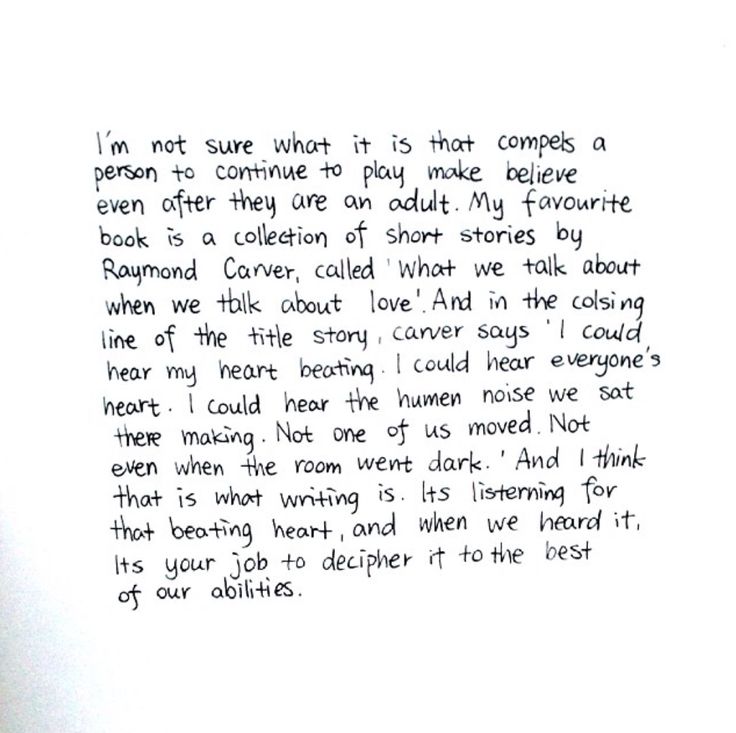 I'm not sure what it is that compels a
person to continue to play make believe
even after they are an adult. My favourite
book is a collection of short stories by
Raymond Carver, called 'What we talk about
when we talk about love'. And in the colsing
line of the title story, carver says 'I could
hear my heart beating. I could hear everyone's
heart. I could hear the humen noise we sat
there making. Not one of us moved. Not
even when the room went dark.' And I think
that is what writing is. Its listerning for
that beating heart, and when we heard it,
Its your job to decipher it to the best
of our abilities.